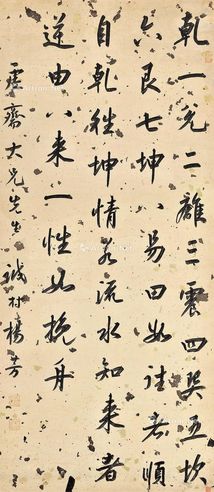 乾一兌二離三震四巽五坎
六艮七坤八易曰數往者順
自乾往坤情若流水知來者
逆由八來一性如挽舟
霽齋大兄先生 誠村楊芳